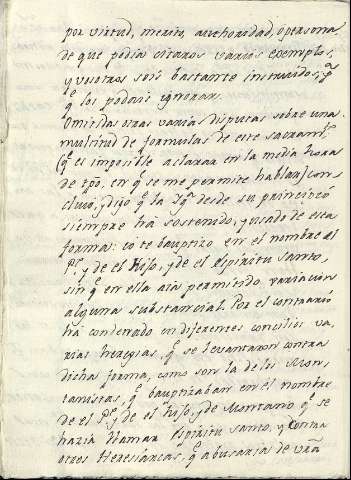 por virtud, merito, authoridad, o persona
de que podia citaros varios exemplos,
y vosotros sois bastante instruidos, pª
q̃ los podais ignorar.
Omitidas otras varias disputas sobre una
multitud de formulas de este sacramᵗᵒ
(q̃ es imposible aclarar en la media hora
de tpo. en q̃ se me permite hablar) con-
cluio, y digo q̃ la Ygª desde su principio
siempre ha sostenido, y usado de esta
forma: io te bauptizo en el nombre del
Pᵉ, y de el Hijo, y de el espiritu santo,
sin q̃ en ella aia permitido variacion
alguna substancial. Por el contrario
ha condenado en diferentes concilios va-
rias heregias, q̃ se levantaron contra
dicha forma, como son la de los Mon-
tanistas, q̃ bauptizaban en el nombre
de el Pᵉ, y de el hijo, y de Montano q̃ se
hazia llamar Espiritu santo, y contra
otros Heresiarcas, q̃ abusaria de vrã